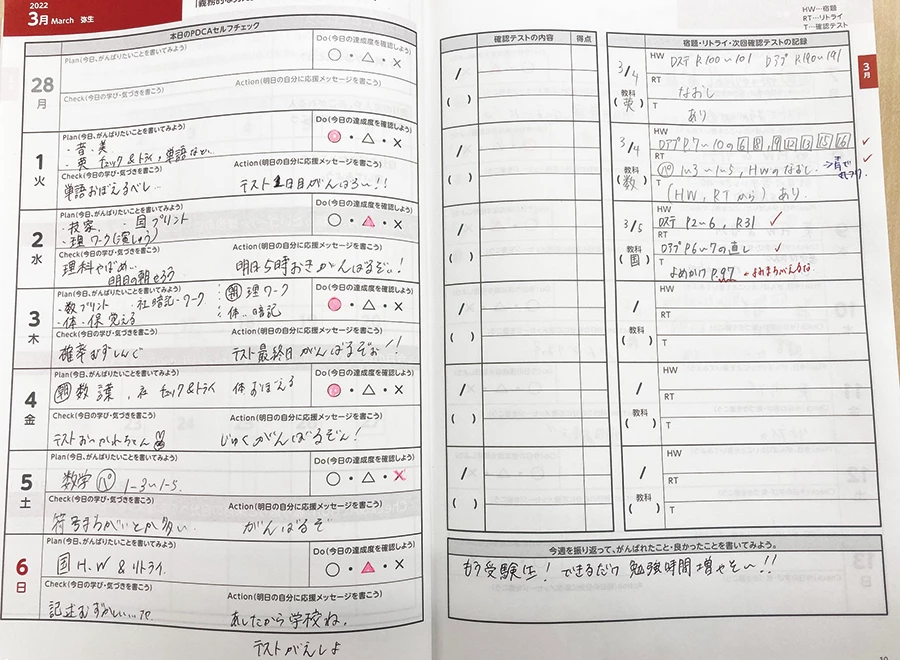 2022
3月 March 弥生
本日のPDCAセルフチェック
28 月
Plan(今日、がんばりたいことを書いてみよう)
Do(今日の達成度を確認しよう)
○・△・×
Check(今日の学び・気づきを書こう)
Action(明日の自分に応援メッセージを書こう)
1 火
Plan(今日、がんばりたいことを書いてみよう)
・音・美
・英 チェック&トライ,単語など…
Do(今日の達成度を確認しよう)
○・△・×
Check(今日の学び・気づきを書こう)
単語おぼえるべし…
Action(明日の自分に応援メッセージを書こう)
テスト1日目がんばろ〜!!
2 水
Plan(今日、がんばりたいことを書いてみよう)
・技家 ・国プリント
・理 ワーク
Do(今日の達成度を確認しよう)
○・△・×
Check(今日の学び・気づきを書こう)
理科やばめ…
明日の朝やろう
Action(明日の自分に応援メッセージを書こう)
明日5時おきがんばるぞぉ!
3 木
Plan(今日、がんばりたいことを書いてみよう)
・数プリント ・社暗記・ワーク
・体・保 覚える
朝 理ワーク
体…暗記
Do(今日の達成度を確認しよう)
○・△・×
Check(今日の学び・気づきを書こう)
確率むずしんど
Action(明日の自分に応援メッセージを書こう)
テスト最終日がんばるぞぉ!!
4 金
Plan(今日、がんばりたいことを書いてみよう)
朝 数 チェック&トライ 体おぼえる
Do(今日の達成度を確認しよう)
○・△・×
Check(今日の学び・気づきを書こう)
Action(明日の自分に応援メッセージを書こう)
じゅくがんばるぞぃ!
5 土
Plan(今日、がんばりたいことを書いてみよう)
数学 ㋩ 1-3〜1-5.
Do(今日の達成度を確認しよう)
○・△・×
Check(今日の学び・気づきを書こう)
符号まちがいとか多い…
Action(明日の自分に応援メッセージを書こう)
がんばるぞ
6 日
Plan(今日、がんばりたいことを書いてみよう)
国 H.W & リトライ.
Do(今日の達成度を確認しよう)
○・△・×
Check(今日の学び・気づきを書こう)
記述むずかしい…
Action(明日の自分に応援メッセージを書こう)
あしたから学校ね.
テストがえしよ
HW…宿題
RT…リトライ
T…確認テスト
3月
確認テストの内容 得点
/
( )
/
( )
/
( )
/
( )
/
( )
/
( )
宿題・リトライ・次回確認テストの記録
3/4
教科
(英)
HW
Dステ P.100〜101 Dアプ P.190〜191
RT
なおし
T
あり
3/4
教科
(数)
HW
Dアプ P.7〜10の 6 8 9 12 13 15 16
RT
㋩ 1-3〜1-5, HWのなおし.
T
(HW, RTから) あり
3/5
教科
(国)
HW
Dステ P2〜6, P.31
RT
Dアプ P6〜7の直し
T
よめかけ P.97
/
教科
( )
HW
RT
T
/
教科
( )
HW
RT
T
/
教科
( )
HW
RT
T
今週を振り返って、がんばれたこと・良かったことを書いてみよう。
もう受験生! できるだけ 勉強時間増やそ〜!!